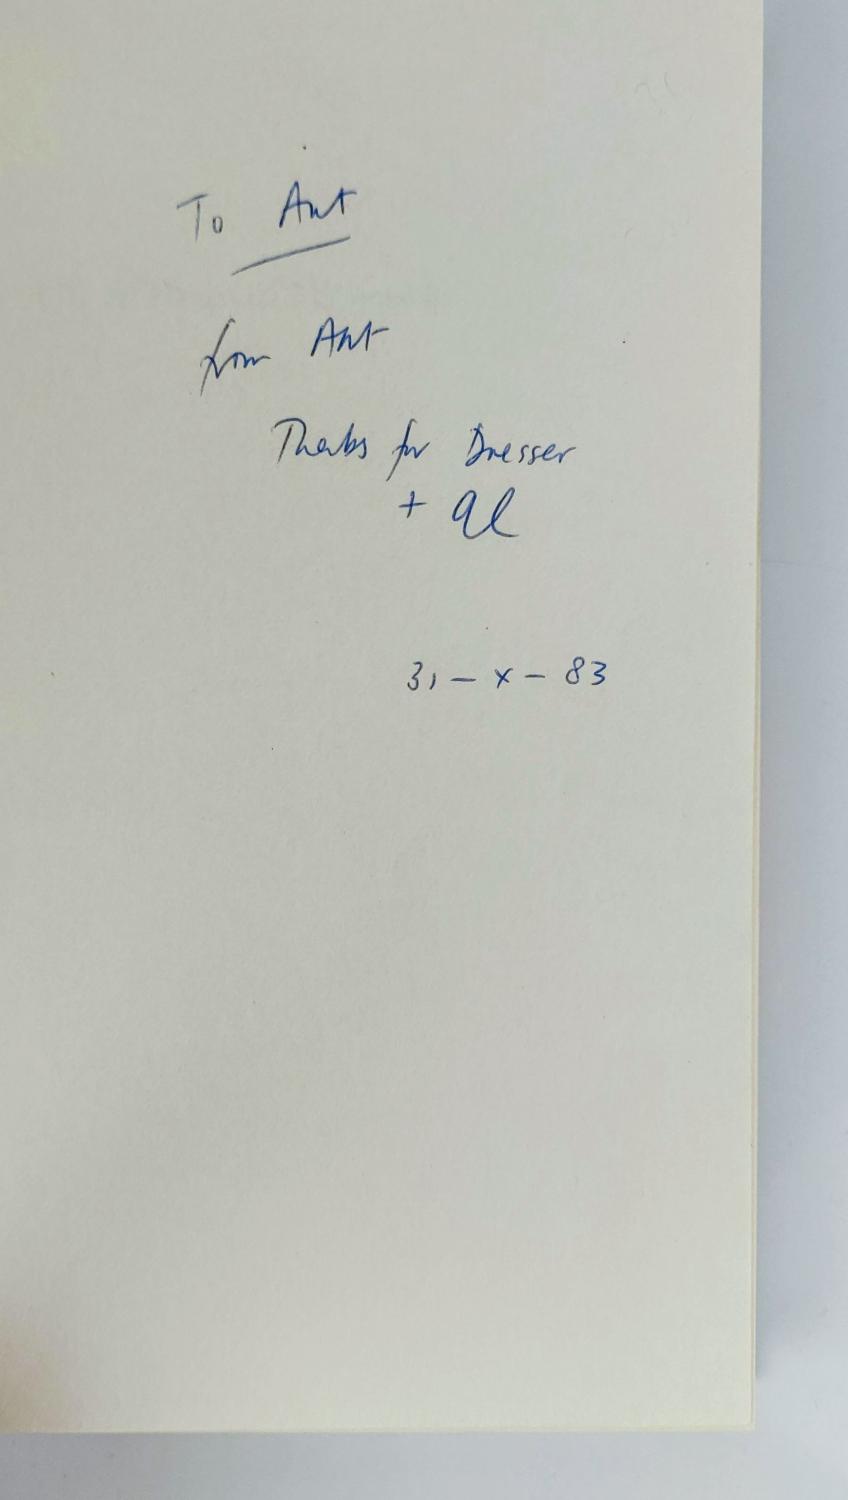 To Ant
from Ant
Thanks for Dresser
+ al
31 - x - 83